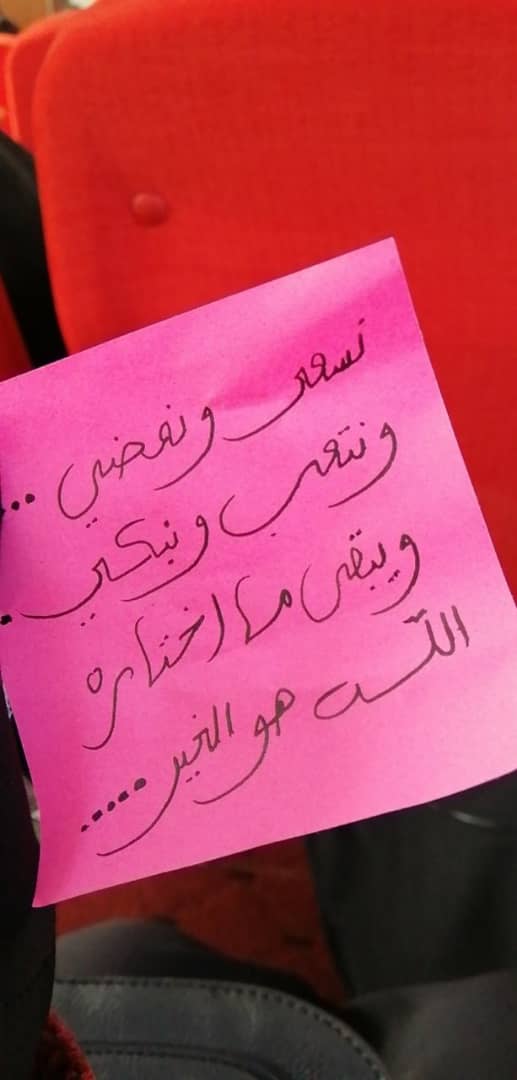 نسعى ونمضي ...
ونتعب ونبكي .
ويبقى ما اختاره
اللّٰه هو الخير .....